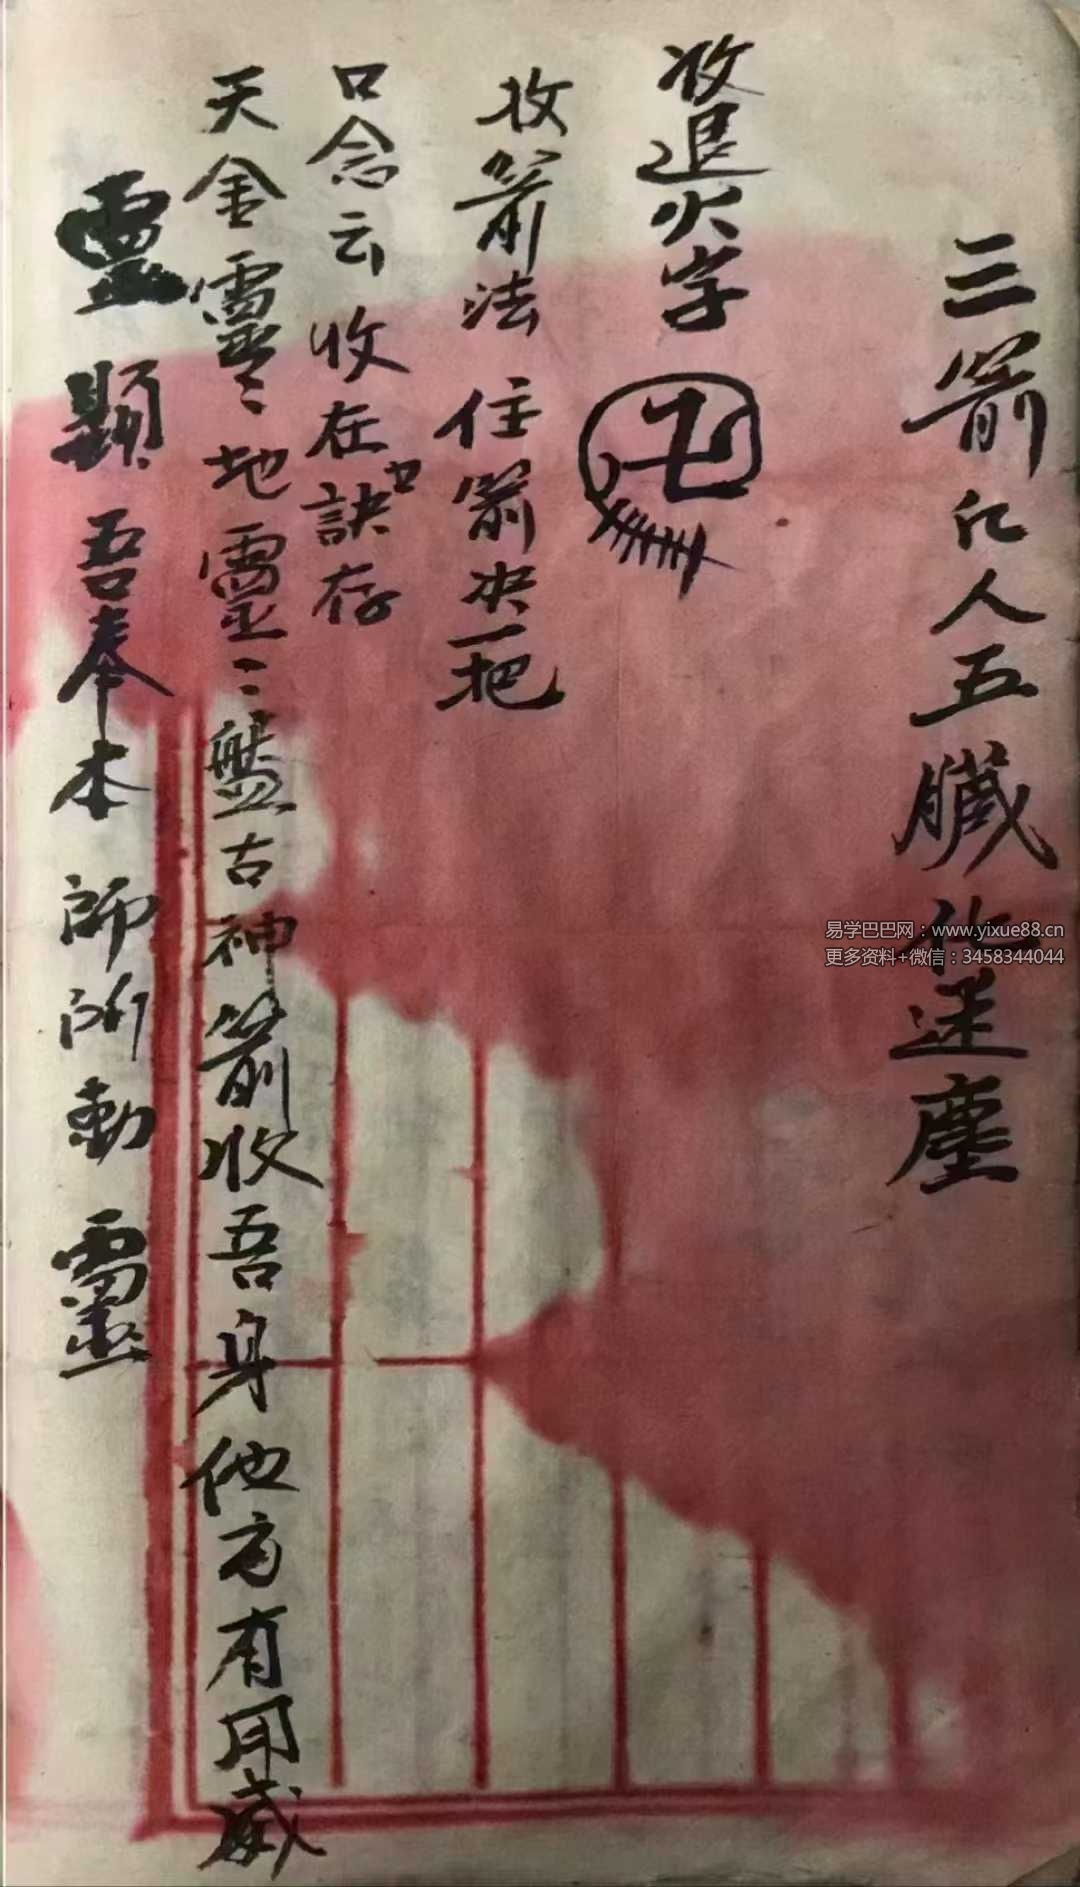 三箭仁人五臓化迷塵
收退火字
卍
收箭法 住箭决一把
口念云收在訣存
廿
天金靈〻地靈〻盤古神箭收吾身他方有用威
靈顕吾奉本師所動靈
易学巴巴网：www.yixue88.cn
更多资料+微信：3458344044